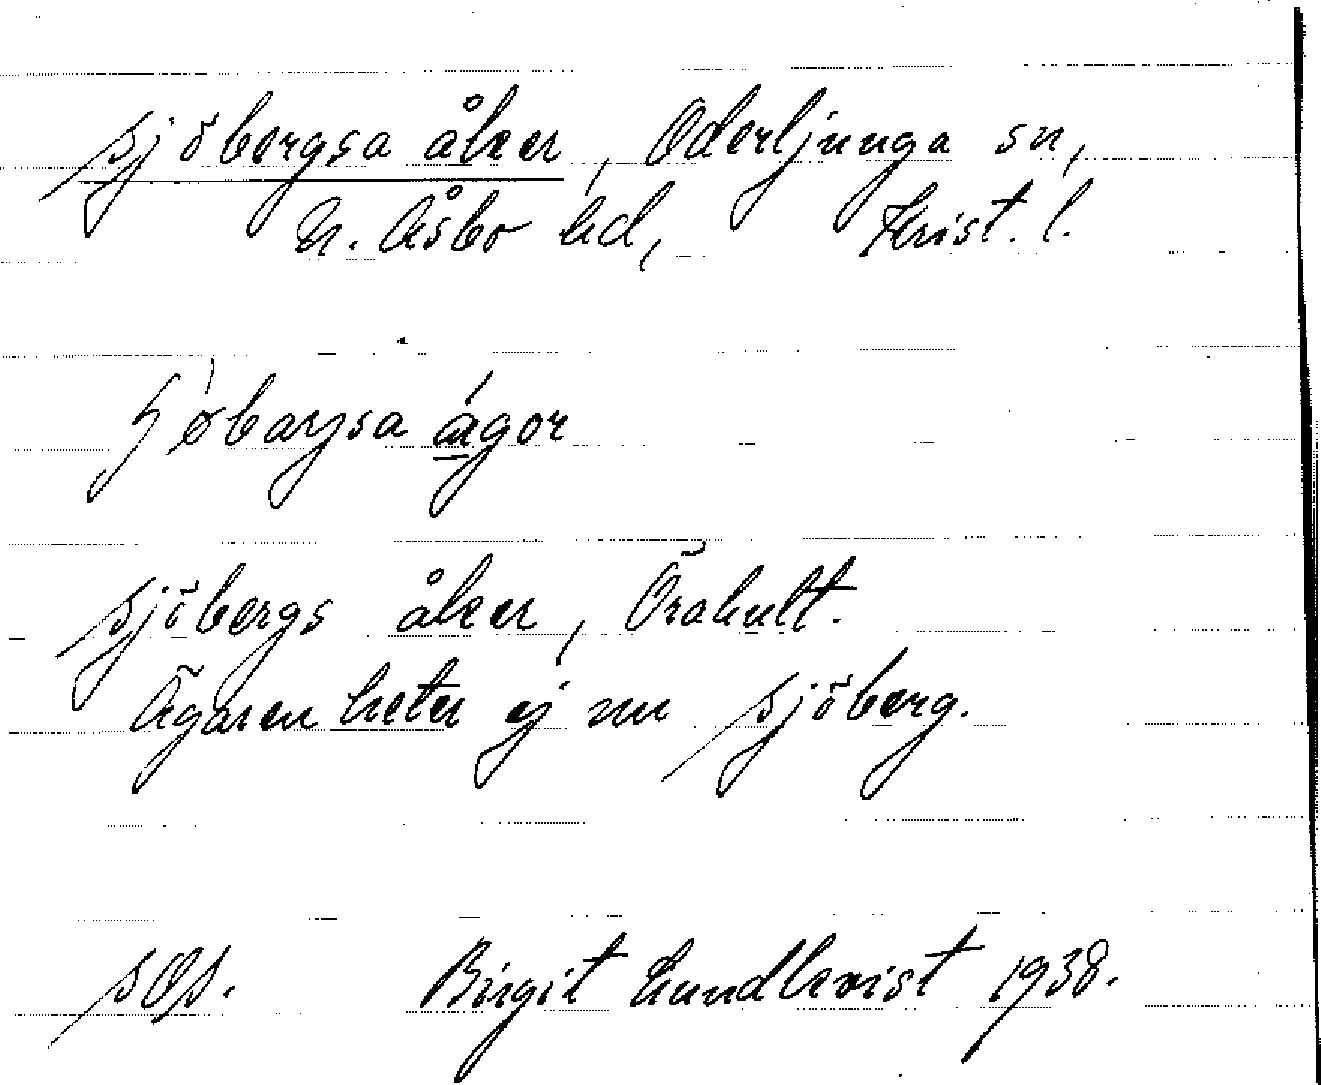 Sjöbergsa åker, Oderljunga sn,
N. Åsbo hd, Krist. l.
ʃøbarjsa ágor
Sjöbergs åker, Örahult.
Ägaren heter ej nu Sjöberg.
SOS. Birgit Lundkvist 1938.